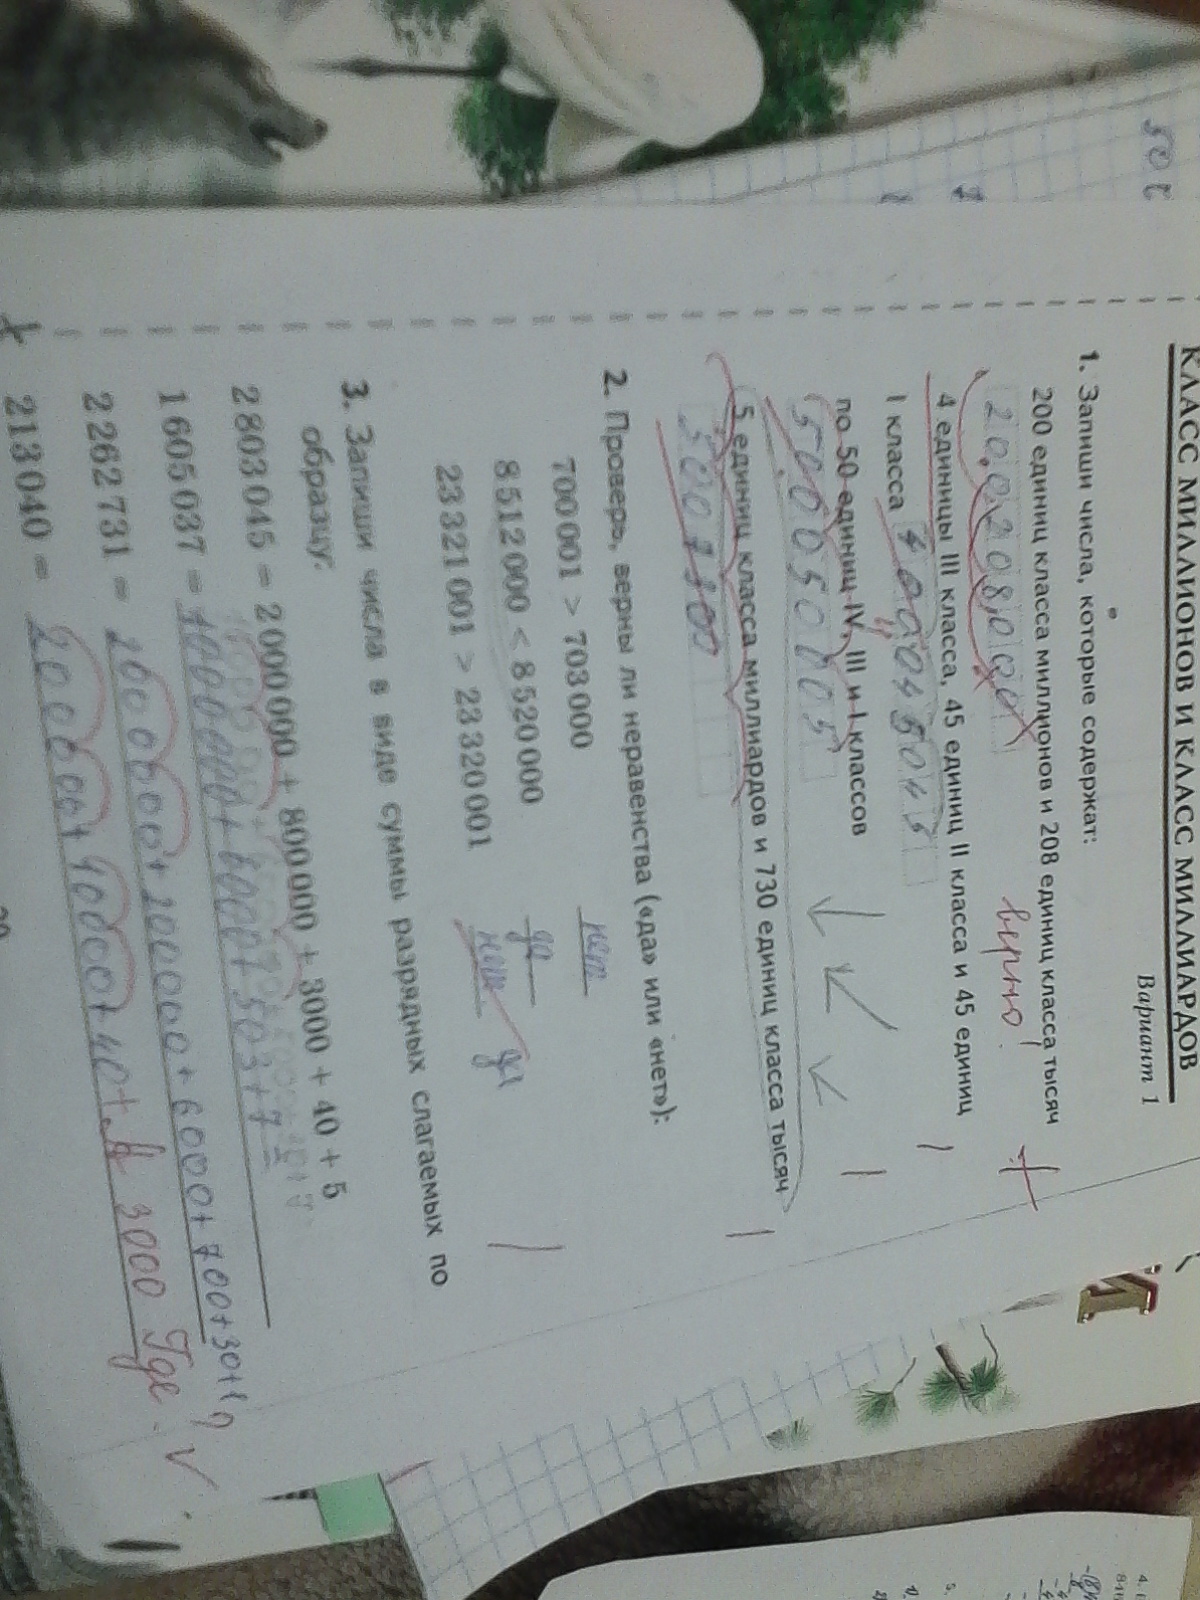 КЛАСС МИЛЛИОНОВ И КЛАСС МИЛЛИАРДОВ
Вариант 1
1. Запиши числа, которые содержат:
200 единиц класса миллионов и 208 единиц класса тысяч
200208000 верно!
4 единицы III класса, 45 единиц II класса и 45 единиц
I класса 400045045
по 50 единиц IV, III и I классов
5000050005
5 единиц класса миллиардов и 730 единиц класса тысяч
5007300
2. Проверь, верны ли неравенства («да» или «нет»):
700 001 > 703 000 нет
8 512 000 < 8 520 000 да
23 321 001 > 23 320 001 нет да
3. Запиши числа в виде суммы разрядных слагаемых по
образцу.
2 803 045 = 2 000 000 + 800 000 + 3000 + 40 + 5
1 605 037 =
2 262 731 = 2000000+200000+6000+700+30+1?
213 040 = 200000+10000+40+ 3000 Где